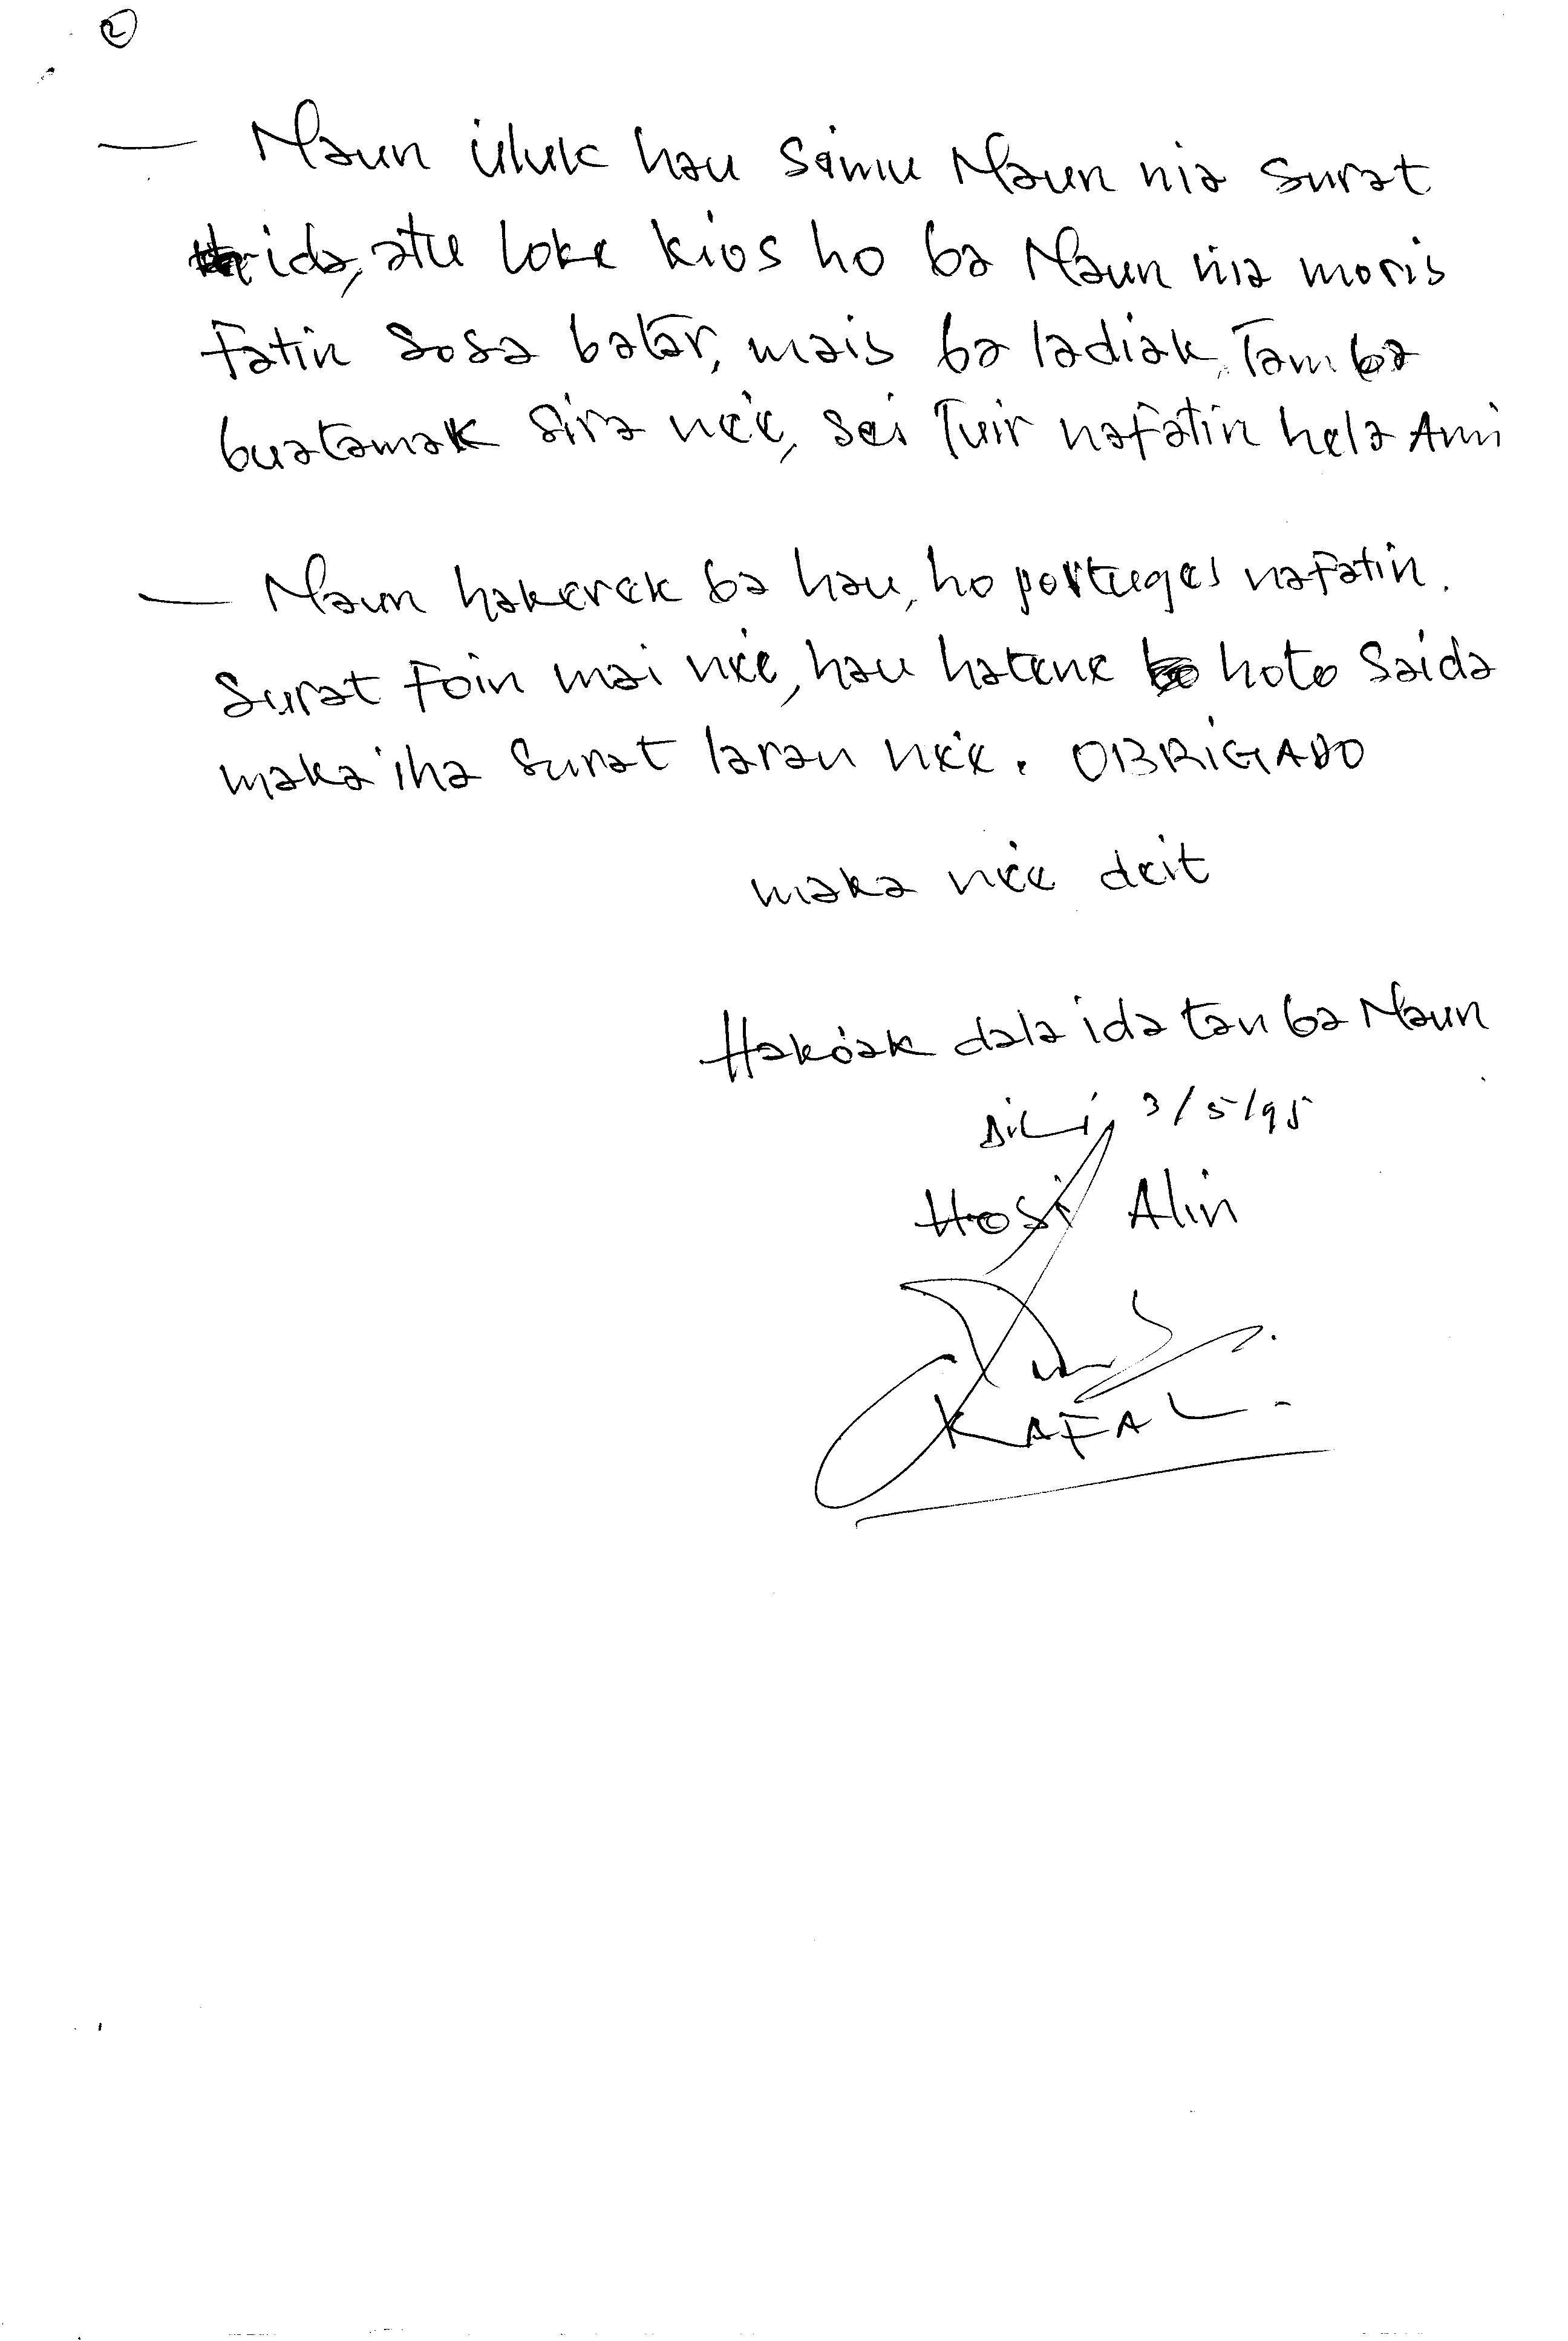 2
— Maun uluk hau simu Maun nia surat
ida, atu loke kios ho ba Maun nia moris
fatin sosa batar, mais ba ladiak, Tamba
buatamak sira neé, sei Tuir nafatin hela Ami
— Maun hakerek ba hau, ho portuges nafatin.
Surat foin mai neé, hau hatene hoto saida
maka iha surat laran neé. OBRIGADO
maka neé deit
Hakóak dala ida tan ba Maun
Dili, 3/5/95
Hosi Alin
KAFAL.